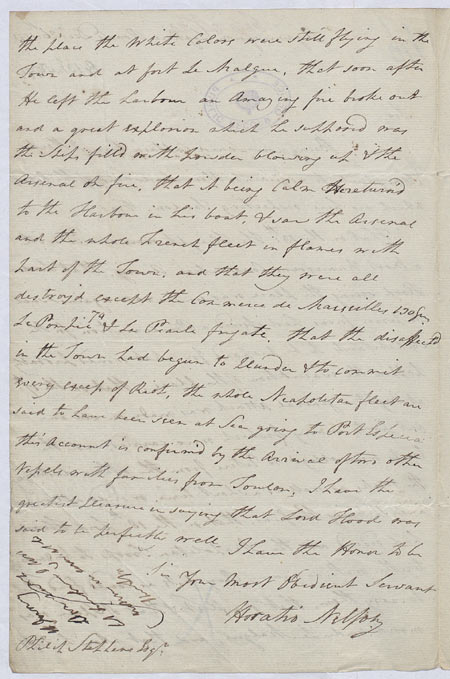 the place the White Colors were still flying in the
Town and at fort Le Malgue, that soon after
He left the harbour an Amazing fire broke out
and a great explosion which he supposed was
the ships filled with powder blowing up & the
Arsenal on fire, that it being Calm He returnd
to the Harbour in his boat, & saw the Arsenal
and the whole French fleet in flames with
part of the Town, and that they were all
destroyd except the Commerce de Marseilles 130 Guns
Le Pompée & La Pearle frigate. that the disaffected
in the Town had begun to Plunder & to commit
every excess of Riot, the whole Neapolitan fleet are
said to have been seen at Sea going to Port Especia
this Account is confirmed by the Arrival of two other
Vessels with families from Toulon, I have the
greatest pleasure in saying that Lord Hood was
said to be perfectly well
I have the Honor to be
Sir Your Most Obedient Servant
Horatio Nelson
Philip Stephens Esqr.